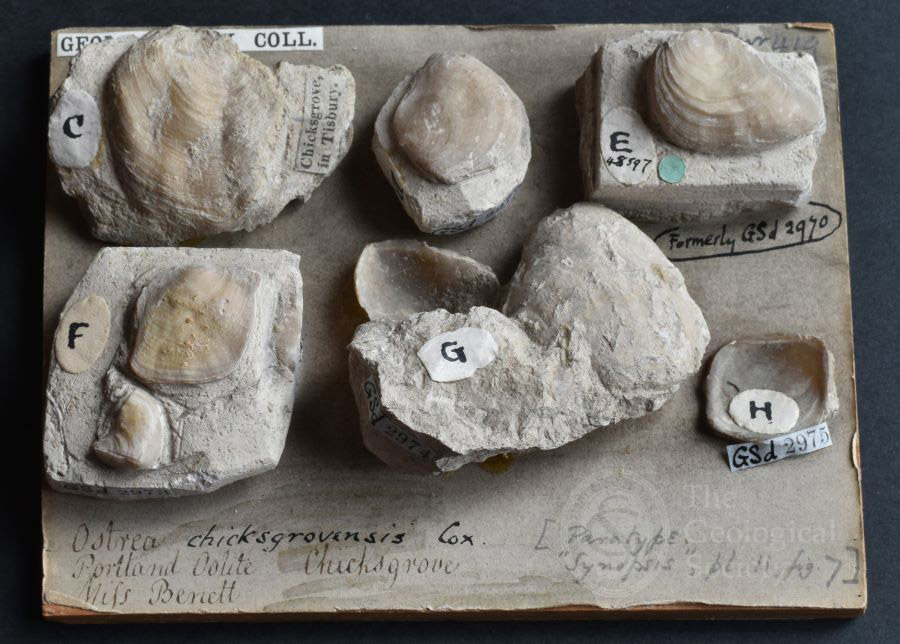 COLL.
C
Chicksgrove,
in Tisbury.
E
48597
Formerly GSd 2970
F
G
GSd 2974
H
GSd 2975
Ostrea chicksgrovensis Cox.
Portland Oolite Chicksgrove
Miss Benett
[Paratype.
"Synopsis", fig. 7]
The
Geological
Society